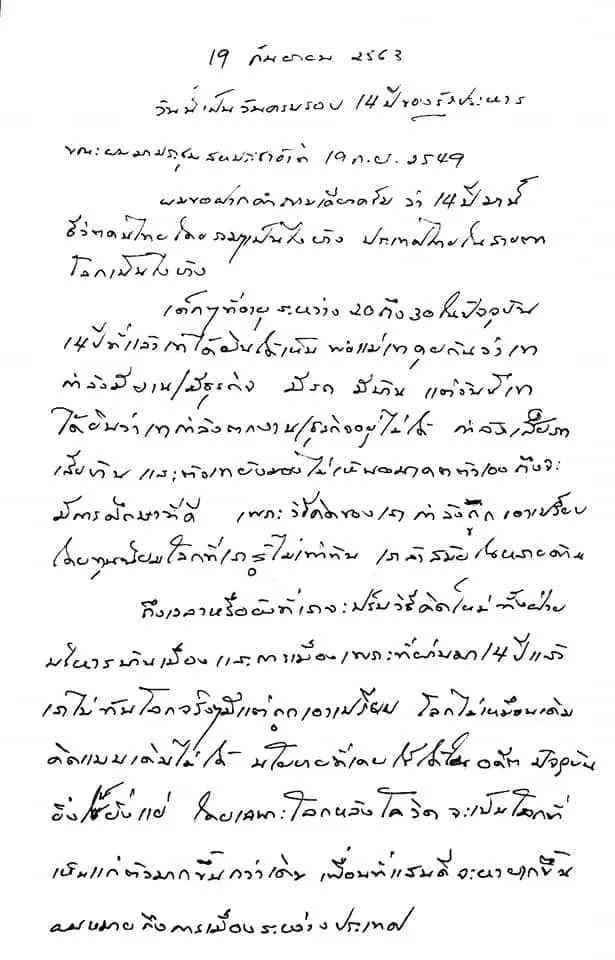 19 กันยายน 2563
วันนี้เป็นวันครบรอบ 14 ปีของรัฐประหาร
ขณะผมมาประชุมสหประชาชาติ 19 ก.ย. 2549
ผมขอฝากคำถามเดียวครับ ว่า 14 ปีมานี้
ชีวิตคนไทยโดยรวมๆเป็นไงบ้าง ประเทศไทยในสายตา
โลกเป็นไงบ้าง
เด็กๆที่อายุระหว่าง 20 ถึง 30 ในปัจจุบัน
14 ปีที่แล้วเขาได้ยินได้เห็น พ่อแม่เขาคุยกันว่าเขา
กำลังมีงาน/มีธุรกิจ มีรถ มีบ้าน แต่วันนี้เขา
ได้ยินว่าเขากำลังตกงาน/ธุรกิจอยู่ไม่ได้ กำลังเสียรถ
เสียบ้าน และตัวเขายังมองไม่เห็นอนาคตตัวเอง ถึงจะ
มีการศึกษาที่ดี เพราะวิธีคิดของเรากำลังถูกเอาเปรียบ
โดยทุนนิยมโลกที่เรารู้ไม่เท่าทัน เราล้าสมัยในหลายด้าน
ถึงเวลาหรือยังที่เราจะปรับวิธีคิดใหม่ ทั้งฝ่าย
บริหารบ้านเมือง และการเมือง เพราะที่ผ่านมา 14 ปีแล้ว
เราไม่ทันโลกจริงๆมีแต่ถูกเอาเปรียบ โลกไม่เหมือนเดิม
คิดแบบเดิมไม่ได้ นโยบายที่เคยใช้ได้ในอดีต ปัจจุบัน
ยิ่งใช้ยิ่งแย่ โดยเฉพาะโลกหลังโควิด จะเป็นโลกที่
เห็นแก่ตัวมากขึ้นกว่าเดิม เพื่อนที่แสนดีจะหายากขึ้น
ผมหมายถึงการเมืองระหว่างประเทศ